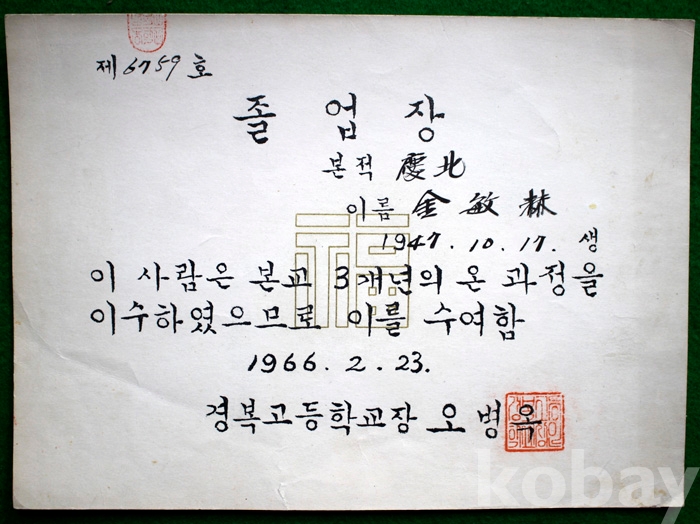 제 6759 호
졸 업 장
본적 慶北
이름 金敏林
1947. 10. 17. 생
이 사람은 본교 3개년의 온 과정을
이수하였으므로 이를 수여함
1966. 2. 23.
경복고등학교장 오병옥
福
kobay